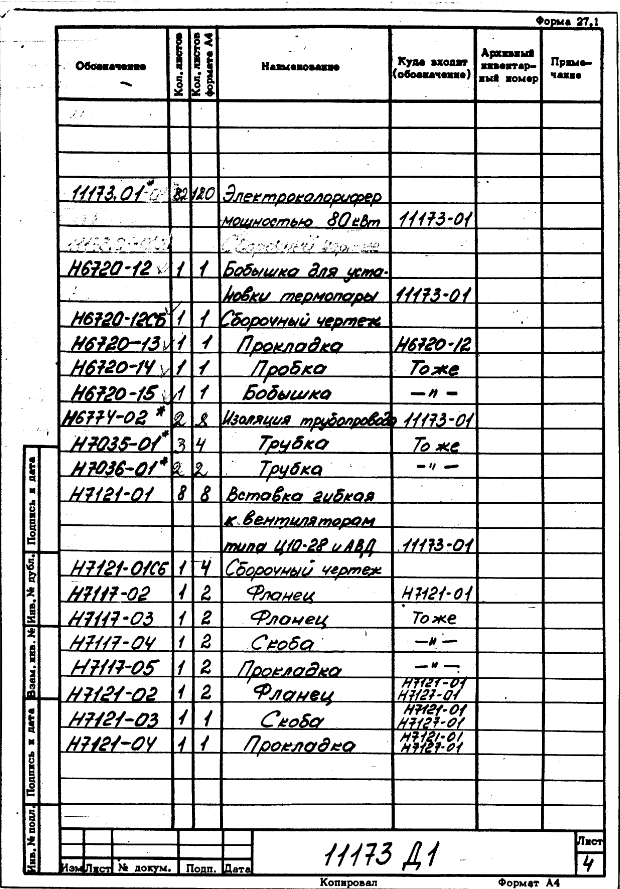 Форма 27,1
Обозначение Кол. листов Кол. листов формата А4 Наименование Куда входит (обозначение) Архивный инвентар-ный номер Приме-чание
11173.01* 82 120 Электрокалорифер
мощностью 80 квт 11173-01
Н6720-12 1 1 Бобышка для уста-
новки термопары 11173-01
Н6720-12СБ 1 1 Сборочный чертеж
Н6720-13 1 1 Прокладка Н6720-12
Н6720-14 1 1 Пробка То же
Н6720-15 1 1 Бобышка —„—
Н6774-02* 2 8 Изоляция трубопровода 11173-01
Н7035-01* 3 4 Трубка То же
Н7036-01* 2 2 Трубка —„—
Н7121-01 8 8 Вставка гибкая
к вентиляторам
типа Ц10-28 и АВД 11173-01
Н7121-01СБ 1 4 Сборочный чертеж
Н7117-02 1 2 Фланец Н7121-01
Н7117-03 1 2 Фланец То же
Н7117-04 1 2 Скоба —„—
Н7117-05 1 2 Прокладка —„—
Н7121-02 1 2 Фланец Н7121-01 Н7127-01
Н7121-03 1 1 Скоба Н7121-01 Н7127-01
Н7121-04 1 1 Прокладка Н7121-01 Н7127-01
Подпись и дата
Инв. № дубл.
Взам. инв. №
Подпись и дата
Инв. № подл.
11173 Д1
Лист
4
Изм Лист № докум. Подп. Дата
Копировал Формат А4